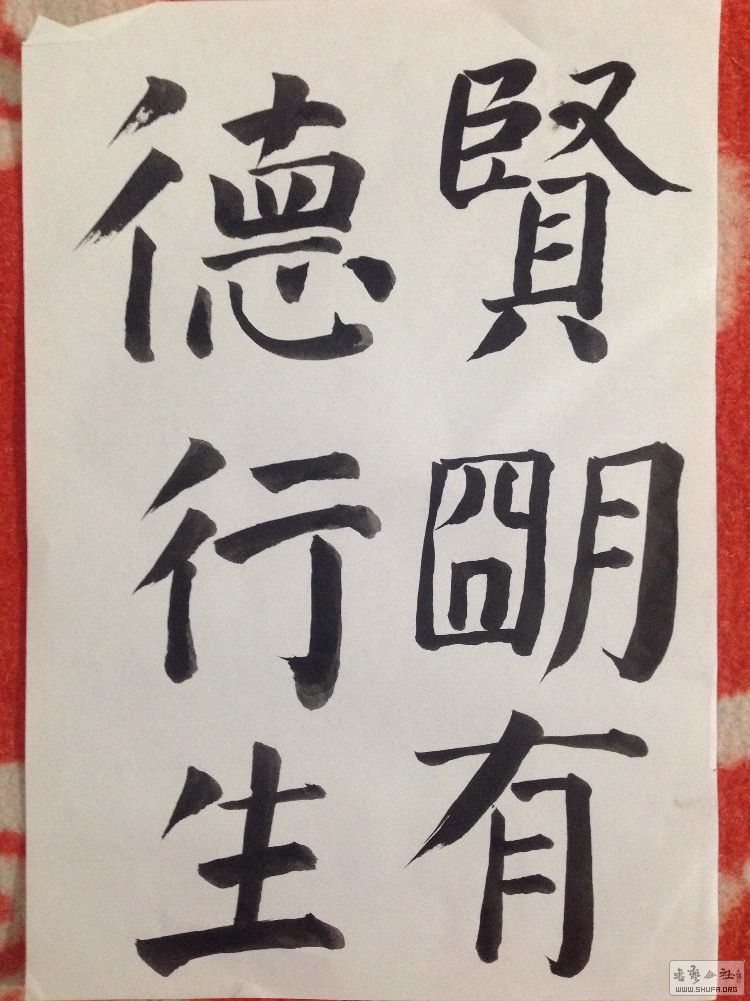 賢朙有
德行生
书艺公社
WWW.SHUFA.ORG